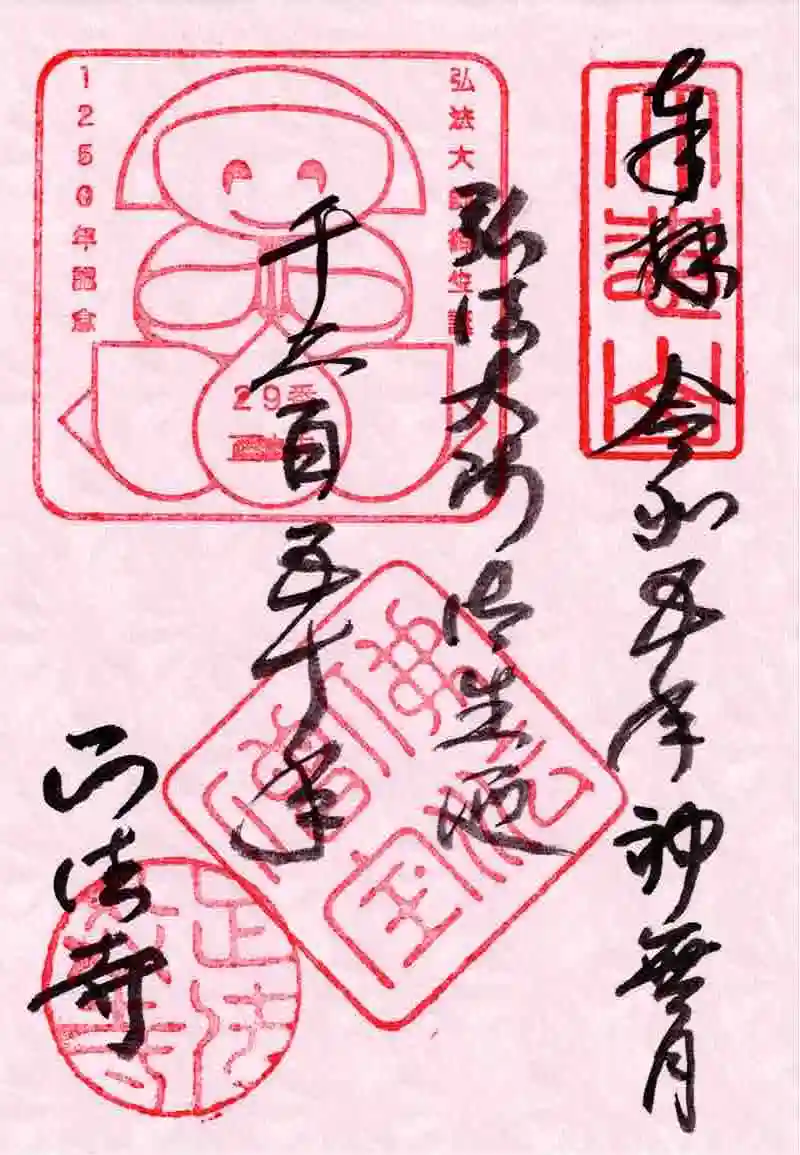 奉拝 令和五年神無月
弘法大師御生誕
千二百五十年
正法寺
弘法大師御生誕
1250年記念
29番
佛法僧宝